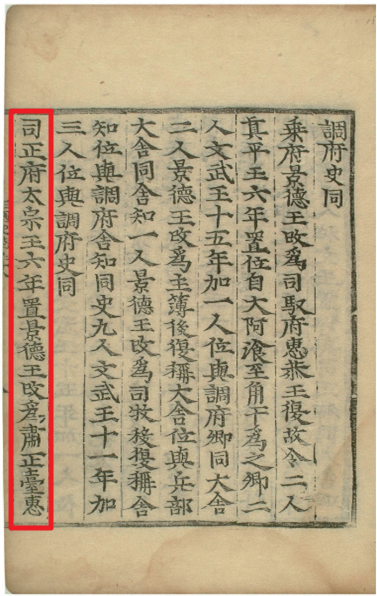 調府史同
乘府景德王改爲司馭府惠恭王復故令二人
眞平王六年置位自大阿湌至角干爲之卿二
人文武王十五年加一人位與調府卿同大舍
二人景德王改爲主薄後復稱大舍位與兵部
大舍同舍知一人景德王改爲司牧後復稱舍
知位與調府舍知同史九人文武王十一年加
三人位與調府史同
司正府太宗王六年置景德王改爲肅正臺惠